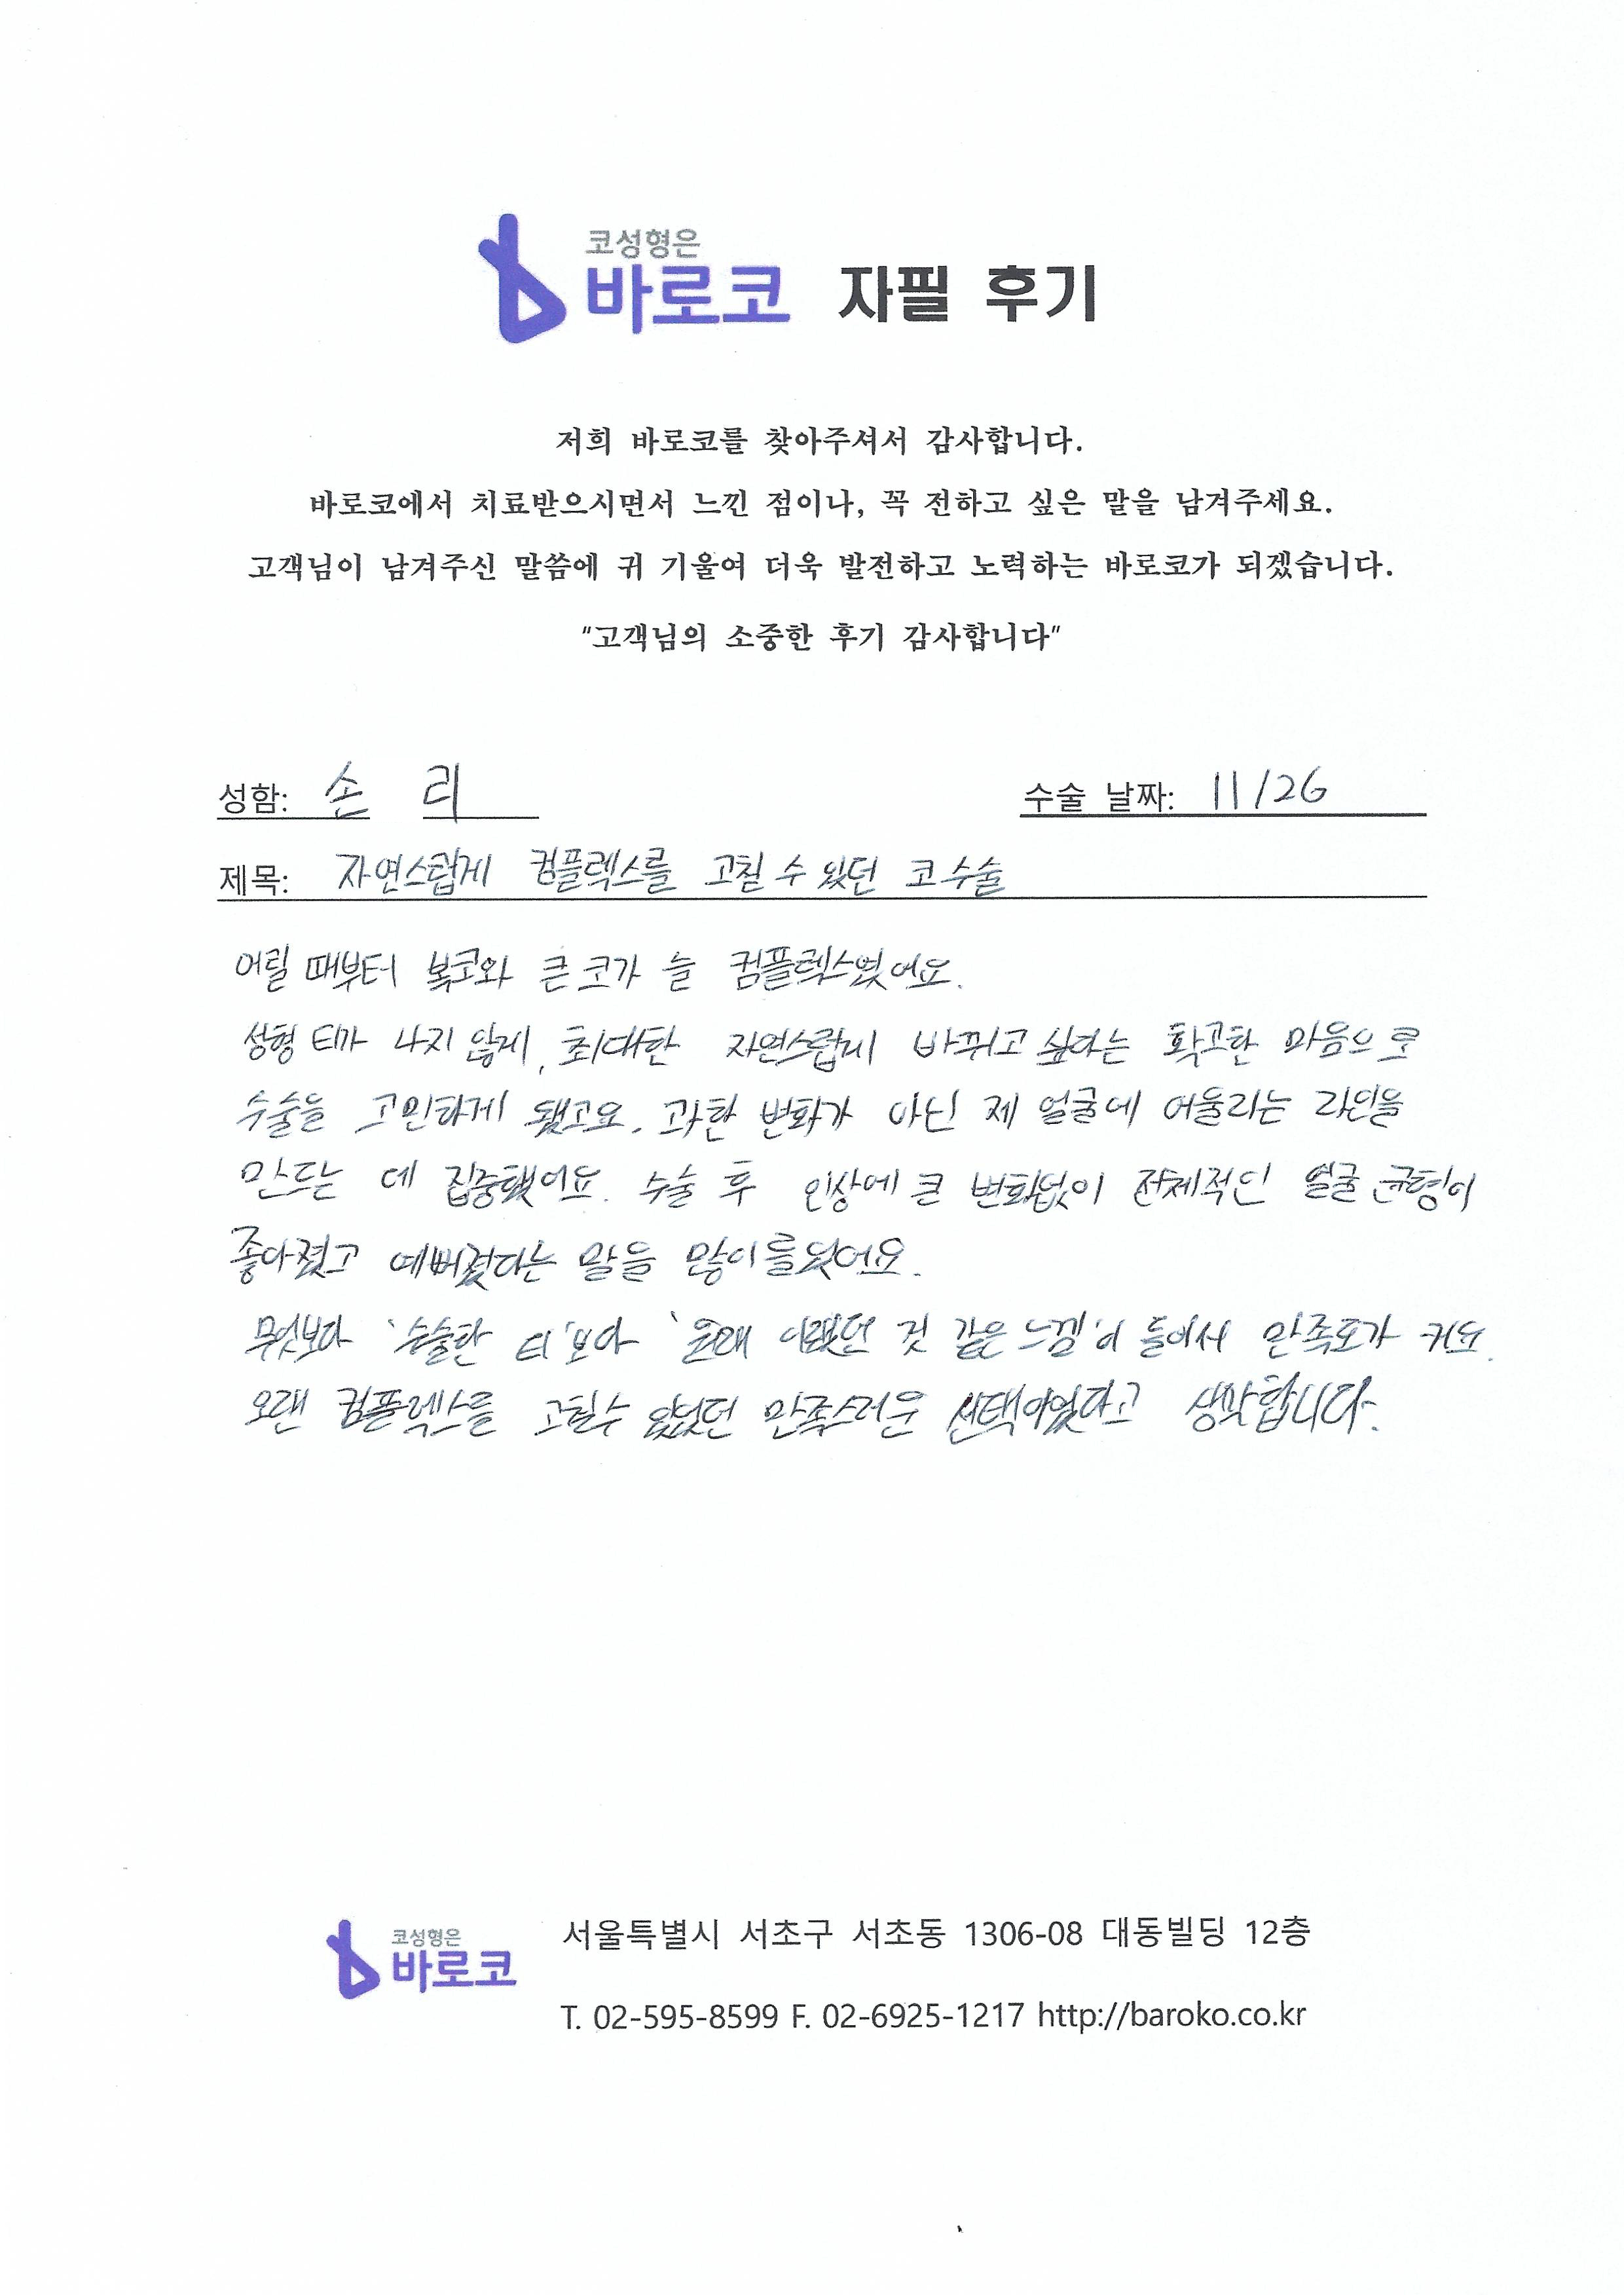 코성형은
바로코 자필 후기
저희 바로코를 찾아주셔서 감사합니다.
바로코에서 치료받으시면서 느낀 점이나, 꼭 전하고 싶은 말을 남겨주세요.
고객님이 남겨주신 말씀에 귀 기울여 더욱 발전하고 노력하는 바로코가 되겠습니다.
"고객님의 소중한 후기 감사합니다"
성함: 손 리 수술 날짜: 11/26
제목: 자연스럽게 컴플렉스를 고칠 수 있던 코 수술
어릴 때부터 복코와 큰 코가 늘 컴플렉스였어요.
성형 티가 나지 않게, 최대한 자연스럽게 바뀌고 싶다는 확고한 마음으로
수술을 고민하게 됐고요. 과한 변화가 아닌 제 얼굴에 어울리는 라인을
만드는 데 집중했어요. 수술 후 인상에 큰 변화없이 전체적인 얼굴 균형이
좋아졌고 예뻐졌다는 말을 많이 들었어요.
무엇보다 '수술한 티'보다 '원래 이랬던 것 같은 느낌'이 들어서 만족도가 커요.
오랜 컴플렉스를 고칠 수 있었던 만족스러운 선택이었다고 생각합니다.
코성형은
바로코
서울특별시 서초구 서초동 1306-08 대동빌딩 12층
T. 02-595-8599 F. 02-6925-1217 http://baroko.co.kr